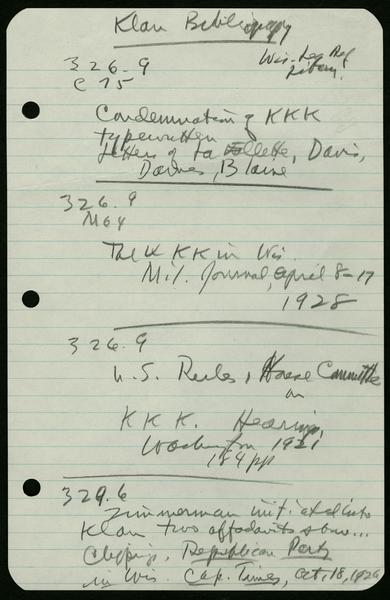 Klan Bibliography
326.9 Wis. Leg Ref
C75 Library.
Condemnation of KKK
typewritten
letters of La Follette, Davis,
Dawes, Blaine
326.9
M64
The KKK in Wis.
Mil. Journal, April 8-17
1928
326.9
U.S. Rules, House Committee
on
KKK. Hearings,
Washington 1921
184 pp
329.6
Zimmerman initiated into
Klan two affadavits show...
Clippings, Republican Party
in Wis. Cap. Times, Oct, 18, 1926